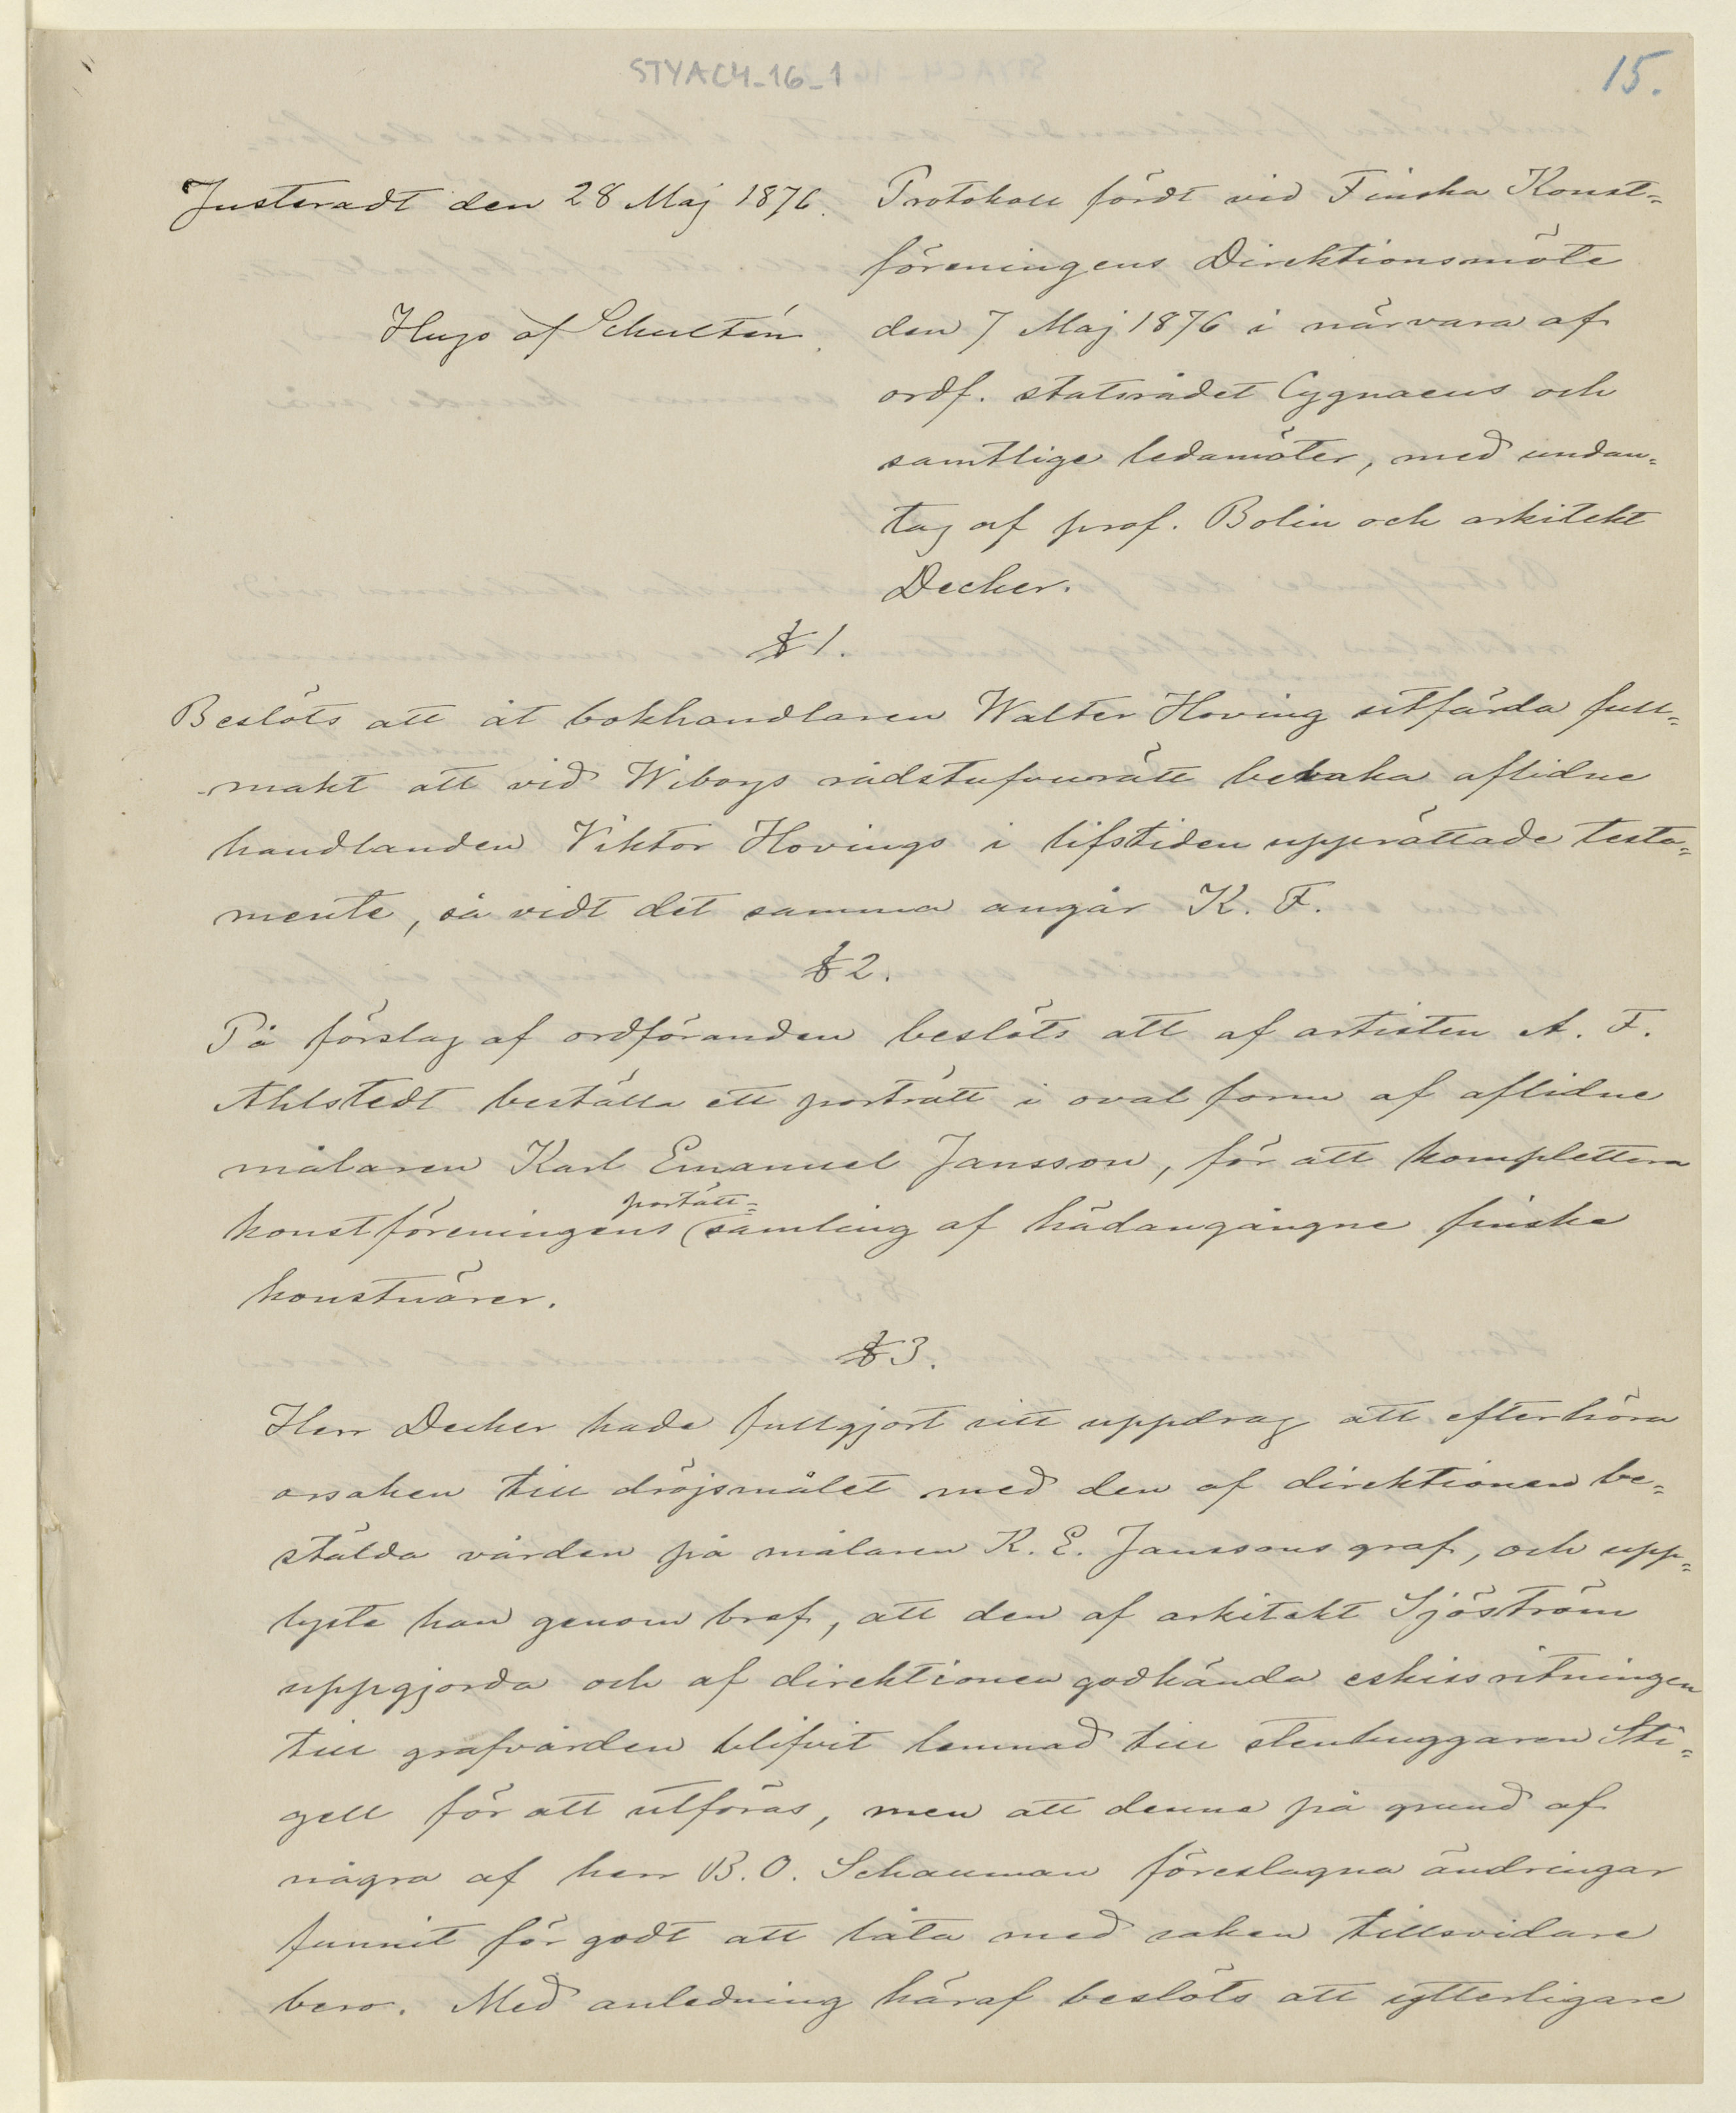 STYAC4_16_1
15.
Justeradt den 28 Maj 1876.
Hugo af Schultén.
Protokoll fördt vid Finska Konst=
föreningens Direktionsmöte
den 7 Maj 1876 i närvara af
ordf. statsrådet Cygnaeus och
samtlige ledamöter, med undan=
tag af prof. Bolin och arkitekt
Decker.
§ 1.
Beslöts att åt bokhandlaren Walter Hoving utfärda full=
makt att vid Wiborgs rådstufvurätt bevaka aflidne
handlanden Viktor Hovings i lifstiden upprättade testa=
mente, så vidt det samma angår K. F.
§ 2.
På förslag af ordföranden beslöts att af artisten A. F.
Ahlstedt beställa ett porträtt i oval form af aflidne
målaren Karl Emanuel Jansson, för att komplettera
portätt=
konstföreningens (samling af hädangångne finske
konstnärer.
§ 3.
Herr Decker hade fullgjort sitt uppdrag att efterhöra
orsaken till dröjsmålet med den af direktionen be=
stälda vården på målaren K. E. Janssons graf, och upp=
lyste han genom bref, att den af arkitekt Sjöström
uppgjorda och af direktionen godkända eskissritningen
till grafvården blifvit lemnad till stenhuggaren Sti=
gell för att utföras, men att denne på grund af
några af herr B. O. Schauman föreslagna ändringar
funnit för godt att låta med saken tillsvidare
bero. Med anledning häraf beslöts att ytterligare